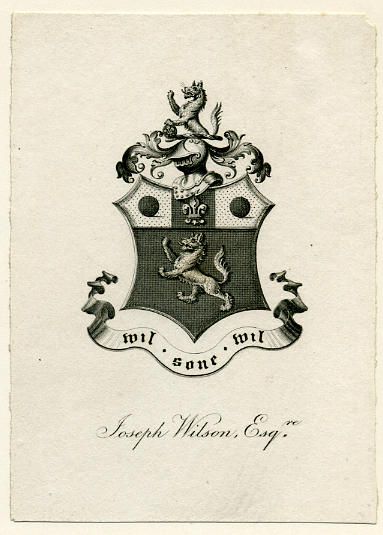 wil · sone · wil
Joseph Wilson, Esqre.